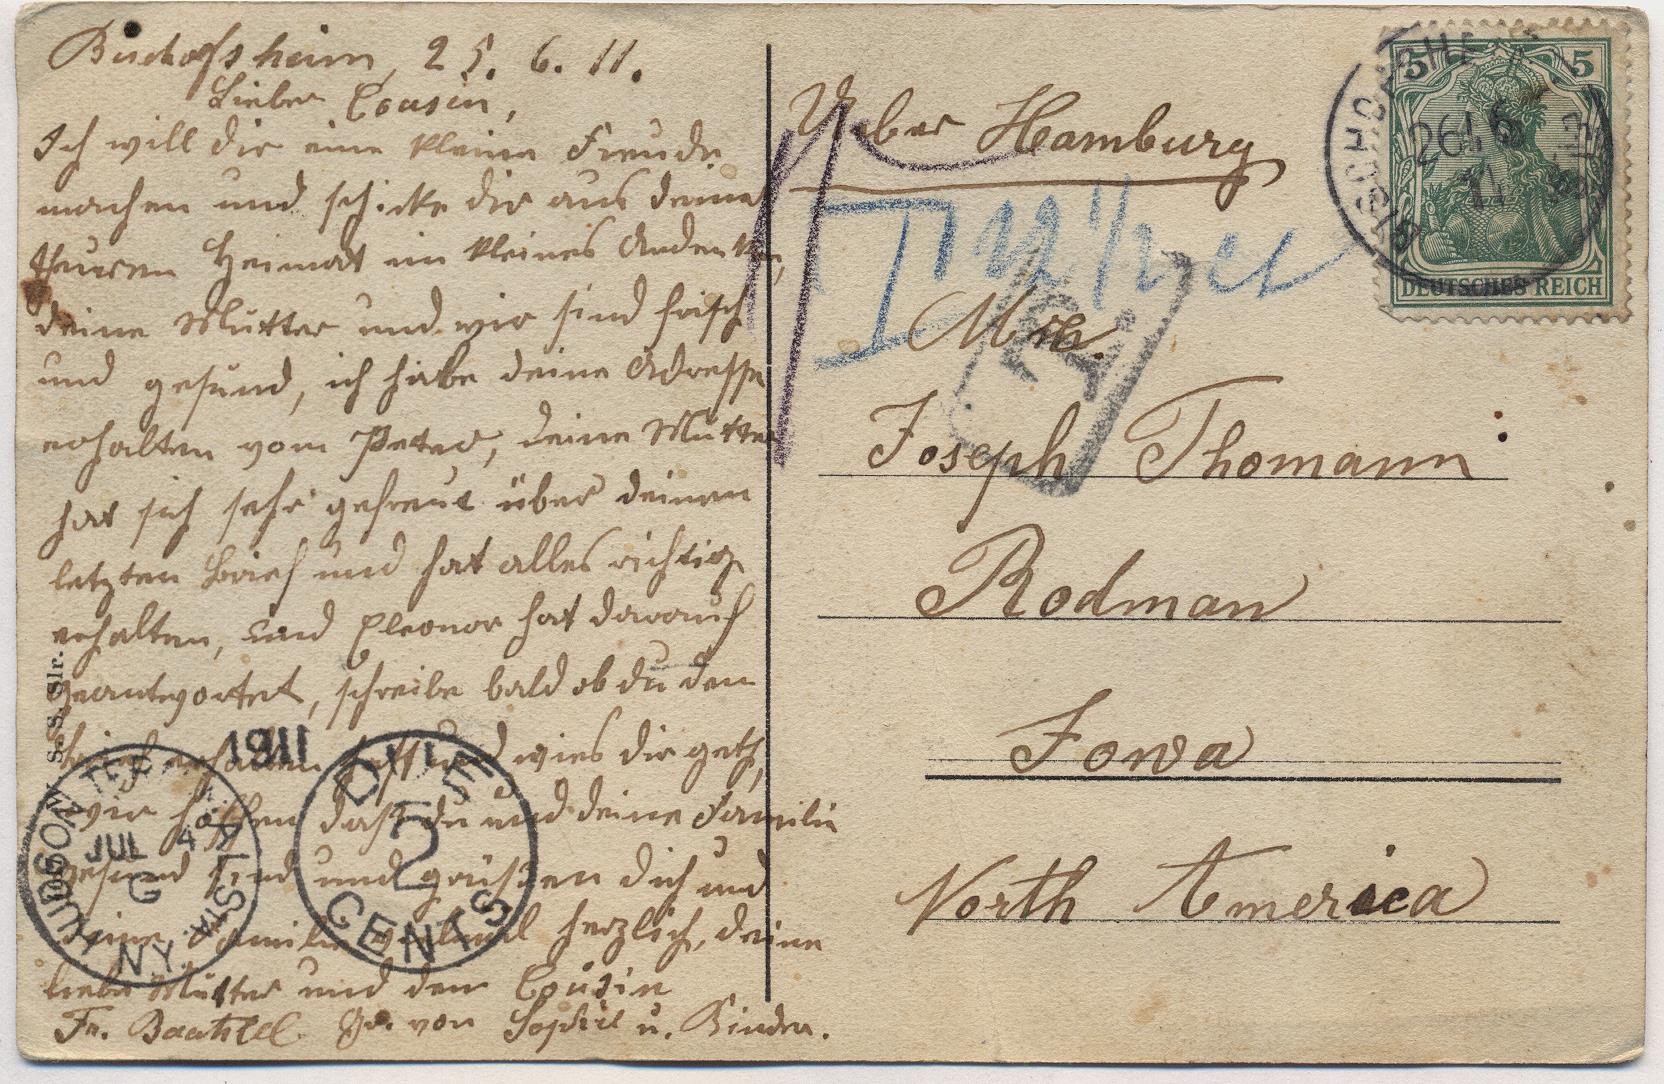 Bischofsheim, 25. 6. 11.
Lieber Cousin,
Ich will dir eine kleine Freude
machen und schicke dir aus deiner
theuren Heimat ein kleines Andenken,
deine Mutter und wir sind frisch
und gesund, ich habe deine Adresse
erhalten vom Peter, deine Mutter
hat sich sehr gefreut über deinen
letzten Brief und hat alles richtig
erhalten, und Eleonor hat darauf
geantwortet, schreibe bald ob du den
Brief erhalten hast und wies dir geth,
wir hoffen daß du und deine Familie
gesund sind und grüßen dich und
deine Familie vielmal herzlich, deine
liebe Mutter und dein Cousin
Fr. Gr. von Sophie u. Kinder.
S. S. Str.
HUDSON TER. STA.
N.Y.
JUL 4
G
1911
DUE
2
CENTS
Ueber Hamburg
T
Mr.
Joseph Thomann
Rodman
Iowa
North America
5 5
DEUTSCHES REICH
26 6
11